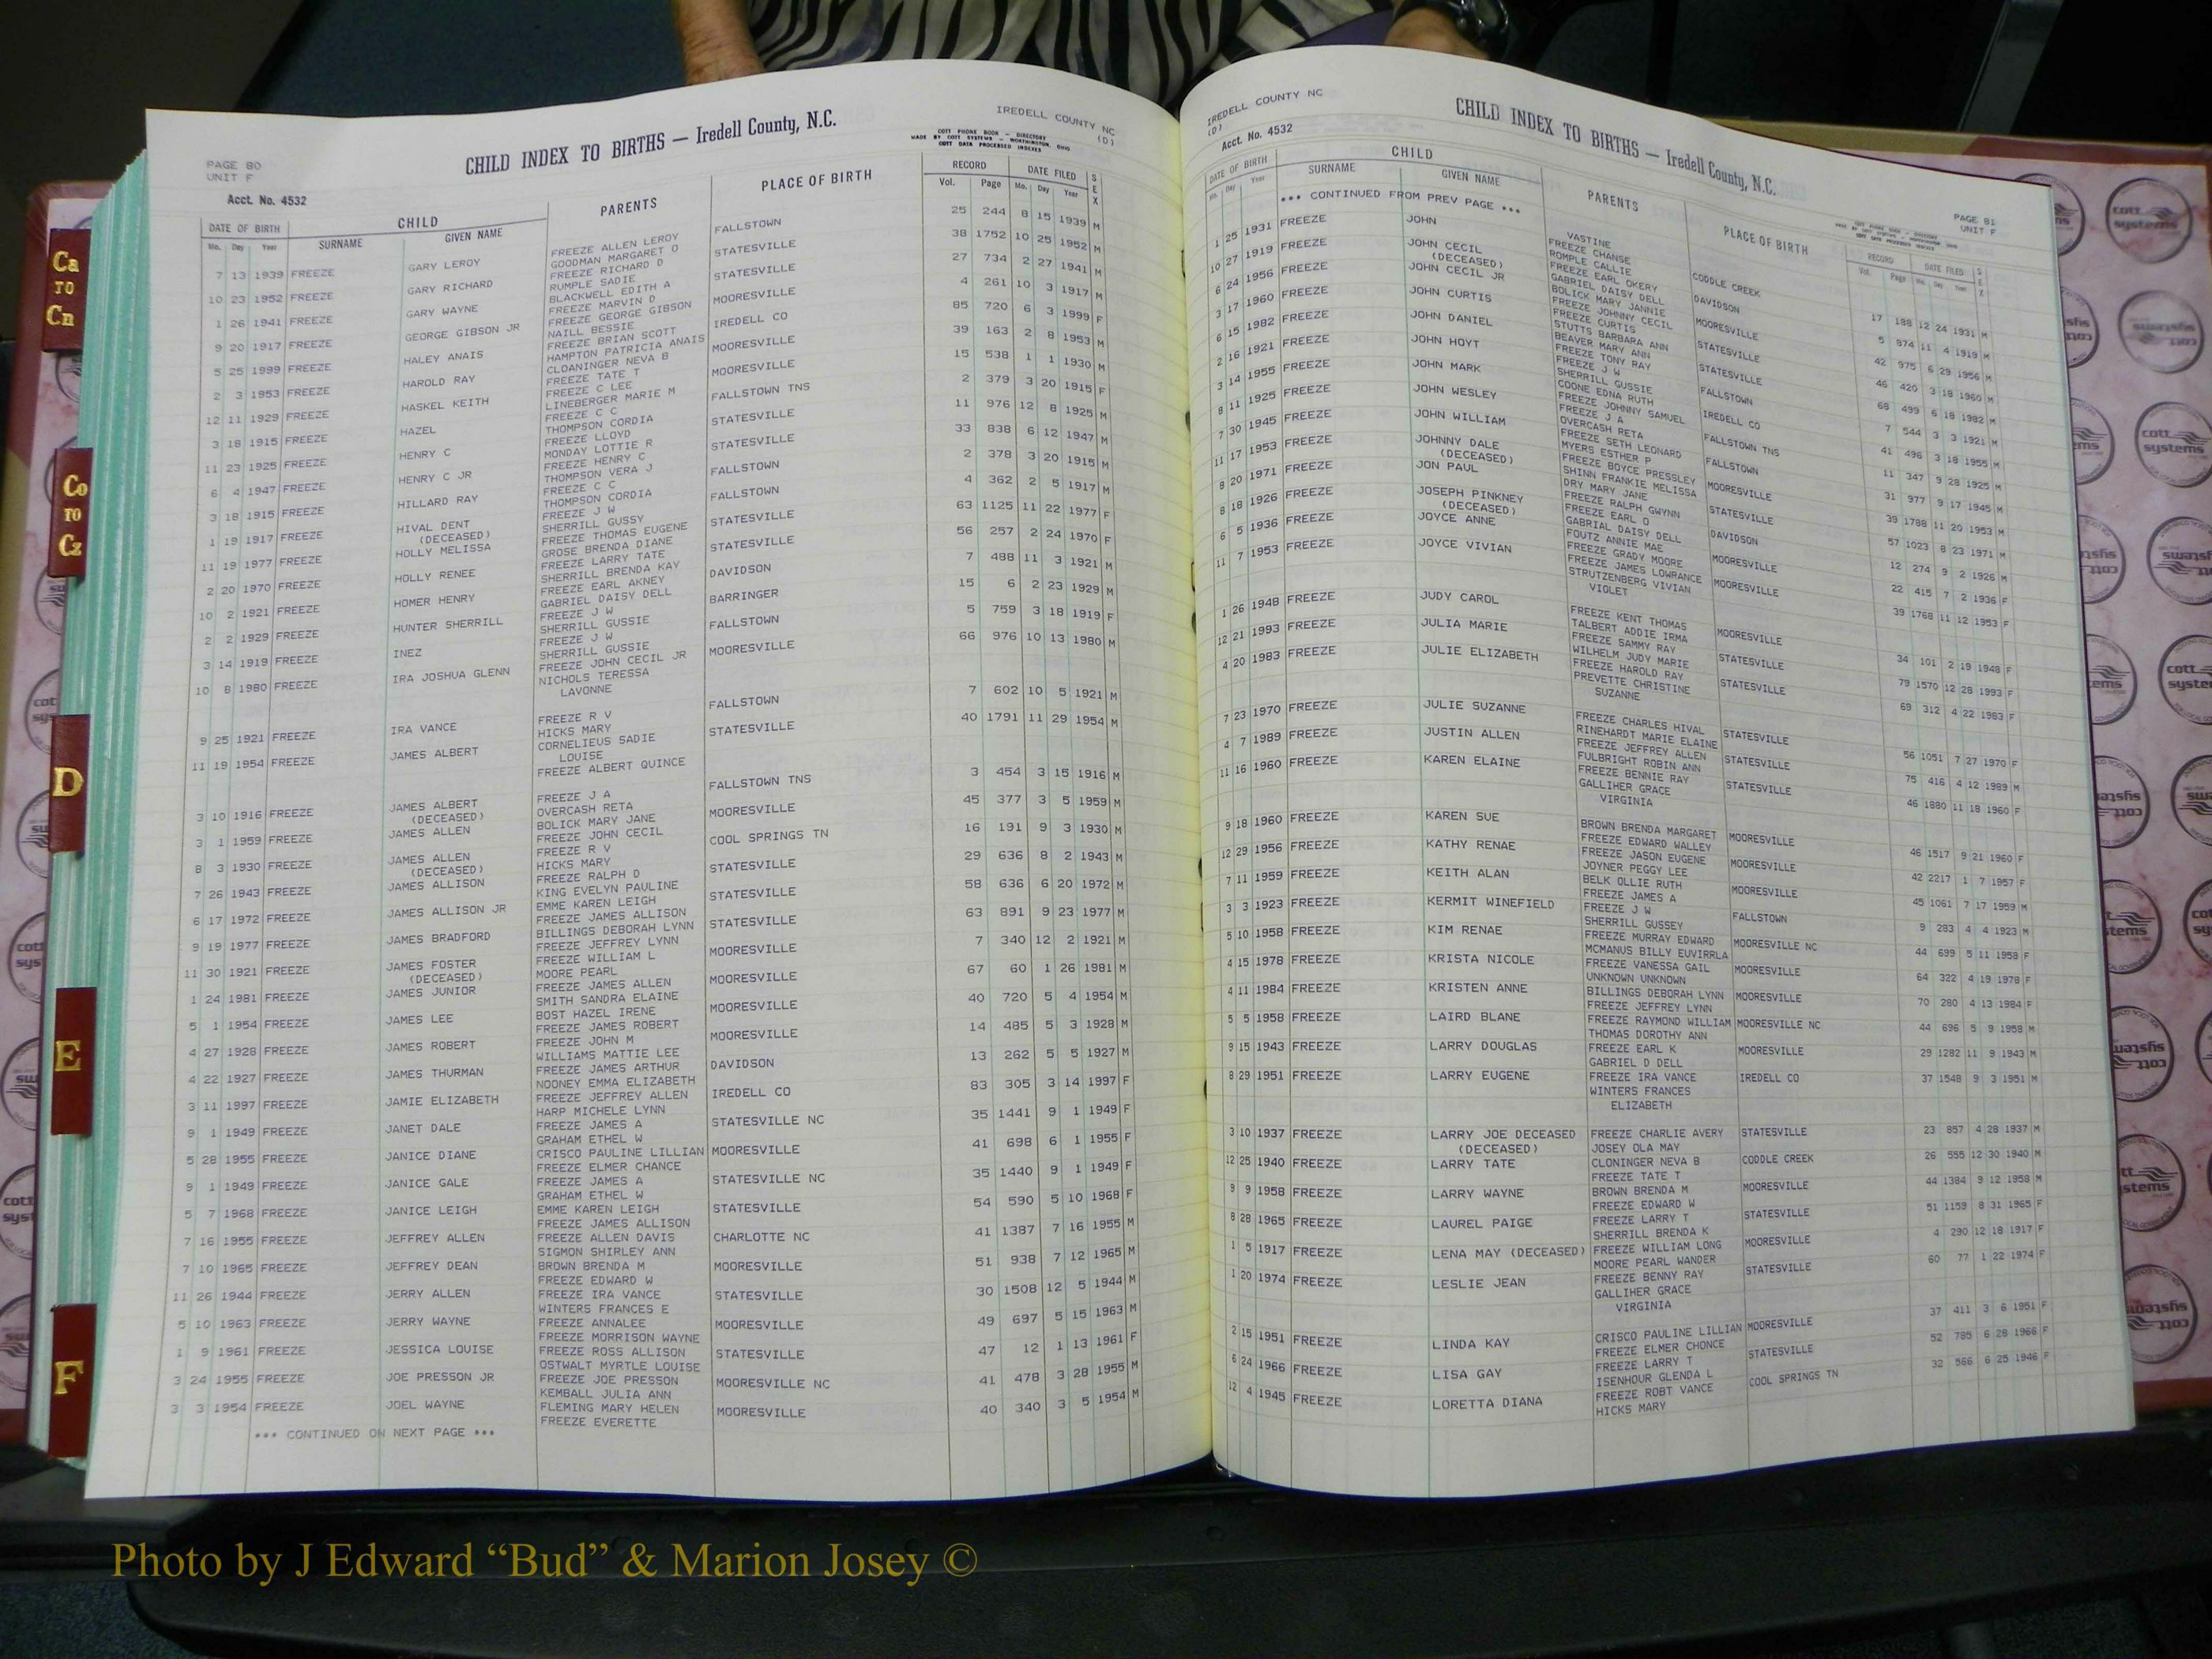 PAGE 80
UNIT F
Acct. No. 4532
CHILD INDEX TO BIRTHS — Iredell County, N.C.
IREDELL COUNTY NC
(D)
COTT PHONE BOOK — DIRECTORY
MADE BY COTT SYSTEMS — WORTHINGTON, OHIO
COTT DATA PROCESSED INDEXES
DATE OF BIRTH CHILD PARENTS PLACE OF BIRTH RECORD DATE FILED SEX
Mo. Day Year SURNAME GIVEN NAME Vol. Page Mo. Day Year
7 13 1939 FREEZE GARY LEROY FREEZE ALLEN LEROY FALLSTOWN 25 244 8 15 1939 M
GOODMAN MARGARET O
10 23 1952 FREEZE GARY RICHARD FREEZE RICHARD D STATESVILLE 38 1752 10 25 1952 M
RUMPLE SADIE
1 26 1941 FREEZE GARY WAYNE BLACKWELL EDITH A STATESVILLE 27 734 2 27 1941 M
FREEZE MARVIN D
9 20 1917 FREEZE GEORGE GIBSON JR FREEZE GEORGE GIBSON MOORESVILLE 4 261 10 3 1917 M
NAILL BESSIE
5 25 1999 FREEZE HALEY ANAIS FREEZE BRIAN SCOTT IREDELL CO 85 720 6 3 1999 F
HAMPTON PATRICIA ANAIS
2 3 1953 FREEZE HAROLD RAY CLOANINGER NEVA B MOORESVILLE 39 163 2 8 1953 M
FREEZE TATE T
12 11 1929 FREEZE HASKEL KEITH FREEZE C LEE MOORESVILLE 15 538 1 1 1930 M
LINEBERGER MARIE M
3 18 1915 FREEZE HAZEL FREEZE C C FALLSTOWN TNS 2 379 3 20 1915 F
THOMPSON CORDIA
11 23 1925 FREEZE HENRY C FREEZE LLOYD STATESVILLE 11 976 12 8 1925 M
MONDAY LOTTIE R
6 4 1947 FREEZE HENRY C JR FREEZE HENRY C STATESVILLE 33 838 6 12 1947 M
THOMPSON VERA J
3 18 1915 FREEZE HILLARD RAY FREEZE C C FALLSTOWN 2 378 3 20 1915 M
THOMPSON CORDIA
1 19 1917 FREEZE HIVAL DENT FREEZE J W FALLSTOWN 4 362 2 5 1917 M
(DECEASED) SHERRILL GUSSY
11 19 1977 FREEZE HOLLY MELISSA FREEZE THOMAS EUGENE STATESVILLE 63 1125 11 22 1977 F
GROSE BRENDA DIANE
2 20 1970 FREEZE HOLLY RENEE FREEZE LARRY TATE STATESVILLE 56 257 2 24 1970 F
SHERRILL BRENDA KAY
10 2 1921 FREEZE HOMER HENRY FREEZE EARL AKNEY DAVIDSON 7 488 11 3 1921 M
GABRIEL DAISY DELL
2 2 1929 FREEZE HUNTER SHERRILL FREEZE J W BARRINGER 15 6 2 23 1929 M
SHERRILL GUSSIE
3 14 1919 FREEZE INEZ FREEZE J W FALLSTOWN 5 759 3 18 1919 F
SHERRILL GUSSIE
10 8 1980 FREEZE IRA JOSHUA GLENN FREEZE JOHN CECIL JR MOORESVILLE 66 976 10 13 1980 M
NICHOLS TERESSA
LAVONNE
9 25 1921 FREEZE IRA VANCE FREEZE R V FALLSTOWN 7 602 10 5 1921 M
HICKS MARY
11 19 1954 FREEZE JAMES ALBERT CORNELIEUS SADIE STATESVILLE 40 1791 11 29 1954 M
LOUISE
FREEZE ALBERT QUINCE
3 10 1916 FREEZE JAMES ALBERT FREEZE J A FALLSTOWN TNS 3 454 3 15 1916 M
(DECEASED) OVERCASH RETA
3 1 1959 FREEZE JAMES ALLEN BOLICK MARY JANE MOORESVILLE 45 377 3 5 1959 M
FREEZE JOHN CECIL
8 3 1930 FREEZE JAMES ALLEN FREEZE R V COOL SPRINGS TN 16 191 9 3 1930 M
(DECEASED) HICKS MARY
7 26 1943 FREEZE JAMES ALLISON FREEZE RALPH D STATESVILLE 29 636 8 2 1943 M
KING EVELYN PAULINE
6 17 1972 FREEZE JAMES ALLISON JR EMME KAREN LEIGH STATESVILLE 58 636 6 20 1972 M
FREEZE JAMES ALLISON
9 19 1977 FREEZE JAMES BRADFORD BILLINGS DEBORAH LYNN STATESVILLE 63 891 9 23 1977 M
FREEZE JEFFREY LYNN
11 30 1921 FREEZE JAMES FOSTER FREEZE WILLIAM L MOORESVILLE 7 340 12 2 1921 M
(DECEASED) MOORE PEARL
1 24 1981 FREEZE JAMES JUNIOR FREEZE JAMES ALLEN MOORESVILLE 67 60 1 26 1981 M
SMITH SANDRA ELAINE
5 1 1954 FREEZE JAMES LEE BOST HAZEL IRENE MOORESVILLE 40 720 5 4 1954 M
FREEZE JAMES ROBERT
4 27 1928 FREEZE JAMES ROBERT FREEZE JOHN M MOORESVILLE 14 485 5 3 1928 M
WILLIAMS MATTIE LEE
4 22 1927 FREEZE JAMES THURMAN FREEZE JAMES ARTHUR DAVIDSON 13 262 5 5 1927 M
NOONEY EMMA ELIZABETH
3 11 1997 FREEZE JAMIE ELIZABETH FREEZE JEFFREY ALLEN IREDELL CO 83 305 3 14 1997 F
HARP MICHELE LYNN
9 1 1949 FREEZE JANET DALE FREEZE JAMES A STATESVILLE NC 35 1441 9 1 1949 F
GRAHAM ETHEL W
5 28 1955 FREEZE JANICE DIANE CRISCO PAULINE LILLIAN MOORESVILLE 41 698 6 1 1955 F
FREEZE ELMER CHANCE
9 1 1949 FREEZE JANICE GALE FREEZE JAMES A STATESVILLE NC 35 1440 9 1 1949 F
GRAHAM ETHEL W
5 7 1968 FREEZE JANICE LEIGH EMME KAREN LEIGH STATESVILLE 54 590 5 10 1968 F
FREEZE JAMES ALLISON
7 16 1955 FREEZE JEFFREY ALLEN FREEZE ALLEN DAVIS CHARLOTTE NC 41 1387 7 16 1955 M
SIGMON SHIRLEY ANN
7 10 1965 FREEZE JEFFREY DEAN BROWN BRENDA M MOORESVILLE 51 938 7 12 1965 M
FREEZE EDWARD W
11 26 1944 FREEZE JERRY ALLEN FREEZE IRA VANCE STATESVILLE 30 1508 12 5 1944 M
WINTERS FRANCES E
5 10 1963 FREEZE JERRY WAYNE FREEZE ANNALEE MOORESVILLE 49 697 5 15 1963 M
FREEZE MORRISON WAYNE
1 9 1961 FREEZE JESSICA LOUISE FREEZE ROSS ALLISON STATESVILLE 47 12 1 13 1961 F
OSTWALT MYRTLE LOUISE
3 24 1955 FREEZE JOE PRESSON JR FREEZE JOE PRESSON MOORESVILLE NC 41 478 3 28 1955 M
KEMBALL JULIA ANN
3 3 1954 FREEZE JOEL WAYNE FLEMING MARY HELEN MOORESVILLE 40 340 3 5 1954 M
FREEZE EVERETTE
*** CONTINUED ON NEXT PAGE ***
IREDELL COUNTY NC
(D)
Acct. No. 4532
CHILD INDEX TO BIRTHS — Iredell County, N.C.
PAGE 81
UNIT F
DATE OF BIRTH CHILD PARENTS PLACE OF BIRTH RECORD DATE FILED SEX
Mo. Day Year SURNAME GIVEN NAME Vol. Page Mo. Day Year
*** CONTINUED FROM PREV PAGE ***
VASTINE
1 25 1931 FREEZE JOHN FREEZE CHANSE CODDLE CREEK 17 188 12 24 1931 M
ROMPLE CALLIE
10 27 1919 FREEZE JOHN CECIL FREEZE EARL OKERY DAVIDSON 5 874 11 4 1919 M
(DECEASED) GABRIEL DAISY DELL
6 24 1956 FREEZE JOHN CECIL JR BOLICK MARY JANNIE MOORESVILLE 42 975 6 29 1956 M
FREEZE JOHNNY CECIL
3 17 1960 FREEZE JOHN CURTIS FREEZE CURTIS STATESVILLE 46 420 3 18 1960 M
STUTTS BARBARA ANN
6 15 1982 FREEZE JOHN DANIEL BEAVER MARY ANN STATESVILLE 68 499 6 18 1982 M
FREEZE TONY RAY
2 16 1921 FREEZE JOHN HOYT FREEZE J W FALLSTOWN 7 544 3 3 1921 M
SHERRILL GUSSIE
3 14 1955 FREEZE JOHN MARK COONE EDNA RUTH IREDELL CO 41 496 3 18 1955 M
FREEZE JOHNNY SAMUEL
8 11 1925 FREEZE JOHN WESLEY FREEZE J A FALLSTOWN TNS 11 347 9 28 1925 M
OVERCASH RETA
7 30 1945 FREEZE JOHN WILLIAM FREEZE SETH LEONARD FALLSTOWN 31 977 9 17 1945 M
MYERS ESTHER P
11 17 1953 FREEZE JOHNNY DALE FREEZE BOYCE PRESSLEY MOORESVILLE 39 1788 11 20 1953 M
(DECEASED) SHINN FRANKIE MELISSA
8 20 1971 FREEZE JON PAUL DRY MARY JANE STATESVILLE 57 1023 8 23 1971 M
FREEZE RALPH GWYNN
8 18 1926 FREEZE JOSEPH PINKNEY FREEZE EARL O DAVIDSON 12 274 9 2 1926 M
(DECEASED) GABRIAL DAISY DELL
6 5 1936 FREEZE JOYCE ANNE FOUTZ ANNIE MAE MOORESVILLE 22 415 7 2 1936 F
FREEZE GRADY MOORE
11 7 1953 FREEZE JOYCE VIVIAN FREEZE JAMES LOWRANCE MOORESVILLE 39 1768 11 12 1953 F
STRUTZENBERG VIVIAN
VIOLET
1 26 1948 FREEZE JUDY CAROL FREEZE KENT THOMAS MOORESVILLE 34 101 2 19 1948 F
TALBERT ADDIE IRMA
12 21 1993 FREEZE JULIA MARIE FREEZE SAMMY RAY STATESVILLE 79 1570 12 28 1993 F
WILHELM JUDY MARIE
4 20 1983 FREEZE JULIE ELIZABETH FREEZE HAROLD RAY STATESVILLE 69 312 4 22 1983 F
PREVETTE CHRISTINE
SUZANNE
7 23 1970 FREEZE JULIE SUZANNE FREEZE CHARLES HIVAL STATESVILLE 56 1051 7 27 1970 F
RINEHARDT MARIE ELAINE
4 7 1989 FREEZE JUSTIN ALLEN FREEZE JEFFREY ALLEN STATESVILLE 75 416 4 12 1989 M
FULBRIGHT ROBIN ANN
11 16 1960 FREEZE KAREN ELAINE FREEZE BENNIE RAY STATESVILLE 46 1880 11 18 1960 F
GALLIHER GRACE
VIRGINIA
9 18 1960 FREEZE KAREN SUE BROWN BRENDA MARGARET MOORESVILLE 46 1517 9 21 1960 F
FREEZE EDWARD WALLEY
12 29 1956 FREEZE KATHY RENAE FREEZE JASON EUGENE MOORESVILLE 42 2217 1 7 1957 F
JOYNER PEGGY LEE
7 11 1959 FREEZE KEITH ALAN BELK OLLIE RUTH MOORESVILLE 45 1061 7 17 1959 M
FREEZE JAMES A
3 3 1923 FREEZE KERMIT WINEFIELD FREEZE J W FALLSTOWN 9 283 4 4 1923 M
SHERRILL GUSSEY
5 10 1958 FREEZE KIM RENAE FREEZE MURRAY EDWARD MOORESVILLE NC 44 699 5 11 1958 F
MCMANUS BILLY EUVIRRLA
4 15 1978 FREEZE KRISTA NICOLE FREEZE VANESSA GAIL MOORESVILLE 64 322 4 19 1978 F
UNKNOWN UNKNOWN
4 11 1984 FREEZE KRISTEN ANNE BILLINGS DEBORAH LYNN MOORESVILLE 70 280 4 13 1984 F
FREEZE JEFFREY LYNN
5 5 1958 FREEZE LAIRD BLANE FREEZE RAYMOND WILLIAM MOORESVILLE NC 44 696 5 9 1958 M
THOMAS DOROTHY ANN
9 15 1943 FREEZE LARRY DOUGLAS FREEZE EARL K MOORESVILLE 29 1282 11 9 1943 M
GABRIEL D DELL
8 29 1951 FREEZE LARRY EUGENE FREEZE IRA VANCE IREDELL CO 37 1548 9 3 1951 M
WINTERS FRANCES
ELIZABETH
3 10 1937 FREEZE LARRY JOE DECEASED FREEZE CHARLIE AVERY STATESVILLE 23 857 4 28 1937 M
(DECEASED) JOSEY OLA MAY
12 25 1940 FREEZE LARRY TATE CLONINGER NEVA B CODDLE CREEK 26 555 12 30 1940 M
FREEZE TATE T
9 9 1958 FREEZE LARRY WAYNE BROWN BRENDA M MOORESVILLE 44 1384 9 12 1958 M
FREEZE EDWARD W
8 28 1965 FREEZE LAUREL PAIGE FREEZE LARRY T STATESVILLE 51 1159 8 31 1965 F
SHERRILL BRENDA K
1 5 1917 FREEZE LENA MAY (DECEASED) FREEZE WILLIAM LONG MOORESVILLE 4 290 12 18 1917 F
MOORE PEARL WANDER
1 20 1974 FREEZE LESLIE JEAN FREEZE BENNY RAY STATESVILLE 60 77 1 22 1974 F
GALLIHER GRACE
VIRGINIA
2 15 1951 FREEZE LINDA KAY CRISCO PAULINE LILLIAN MOORESVILLE 37 411 3 6 1951 F
FREEZE ELMER CHONCE
6 24 1966 FREEZE LISA GAY FREEZE LARRY T STATESVILLE 52 785 6 28 1966 F
ISENHOUR GLENDA L
12 4 1945 FREEZE LORETTA DIANA FREEZE ROBT VANCE COOL SPRINGS TN 32 566 6 25 1946 F
HICKS MARY
Ca TO Cn
Co TO Cz
D
E
F
cott systems
Photo by J Edward “Bud” & Marion Josey ©